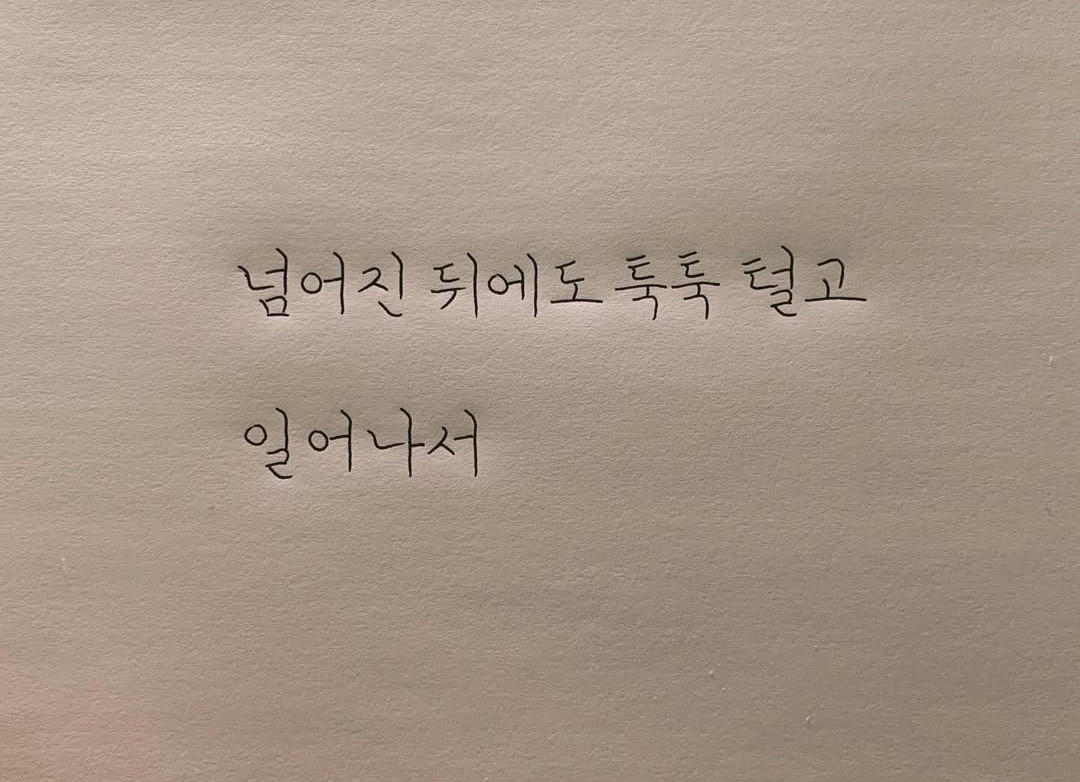 넘어진 뒤에도 툭툭 털고
일어나서